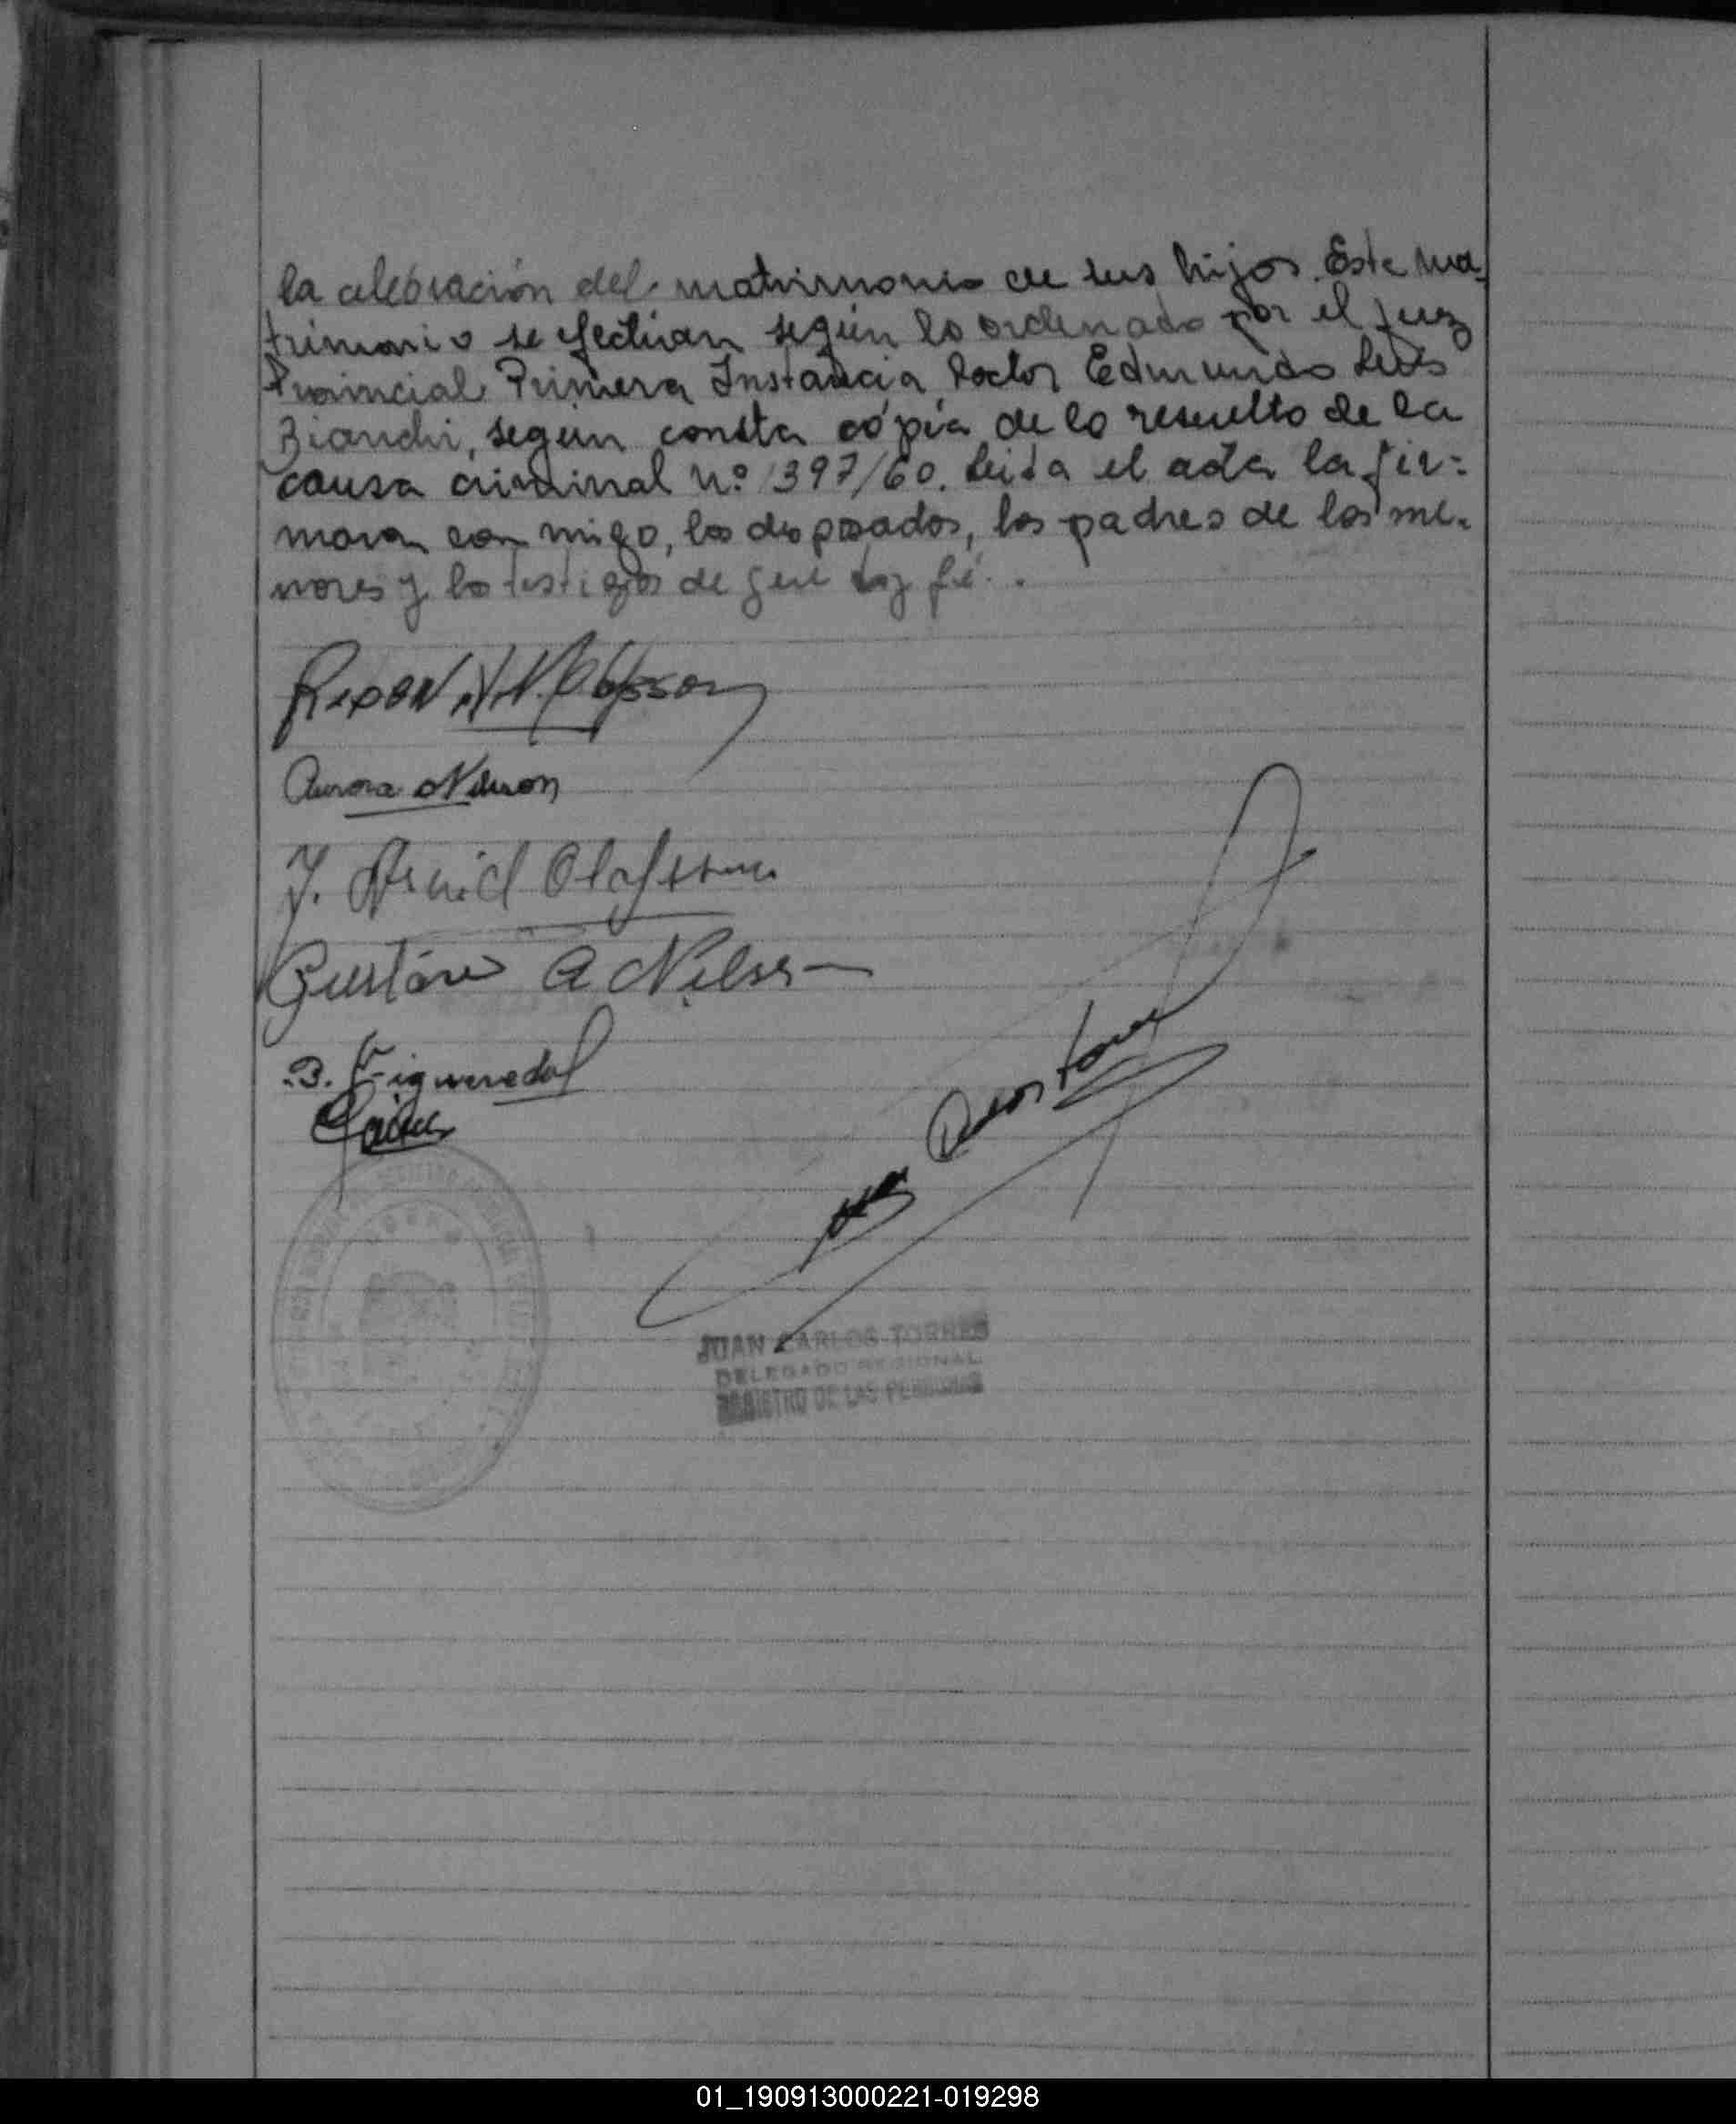 la celebración del matrimonio de sus hijos. Este ma-
trimonio se efectuan según lo ordenado por el Juez
Provincial Primera Instancia, Doctor Edmundo Luis
Bianchi, según consta cópia de lo resuelto de la
causa criminal nº 1397/60. Leida el acta la fir-
maron con migo, los desposados, los padres de los me-
nores y los testigos de que doy fé.
Olafsson
Aurora Nilsson
J. Arvid Olafsson
Gustavo A Nilsson
B. Figueredo
JUAN CARLOS TORRES
DELEGADO REGIONAL
REGISTRO DE LAS PERSONAS
01_190913000221-019298